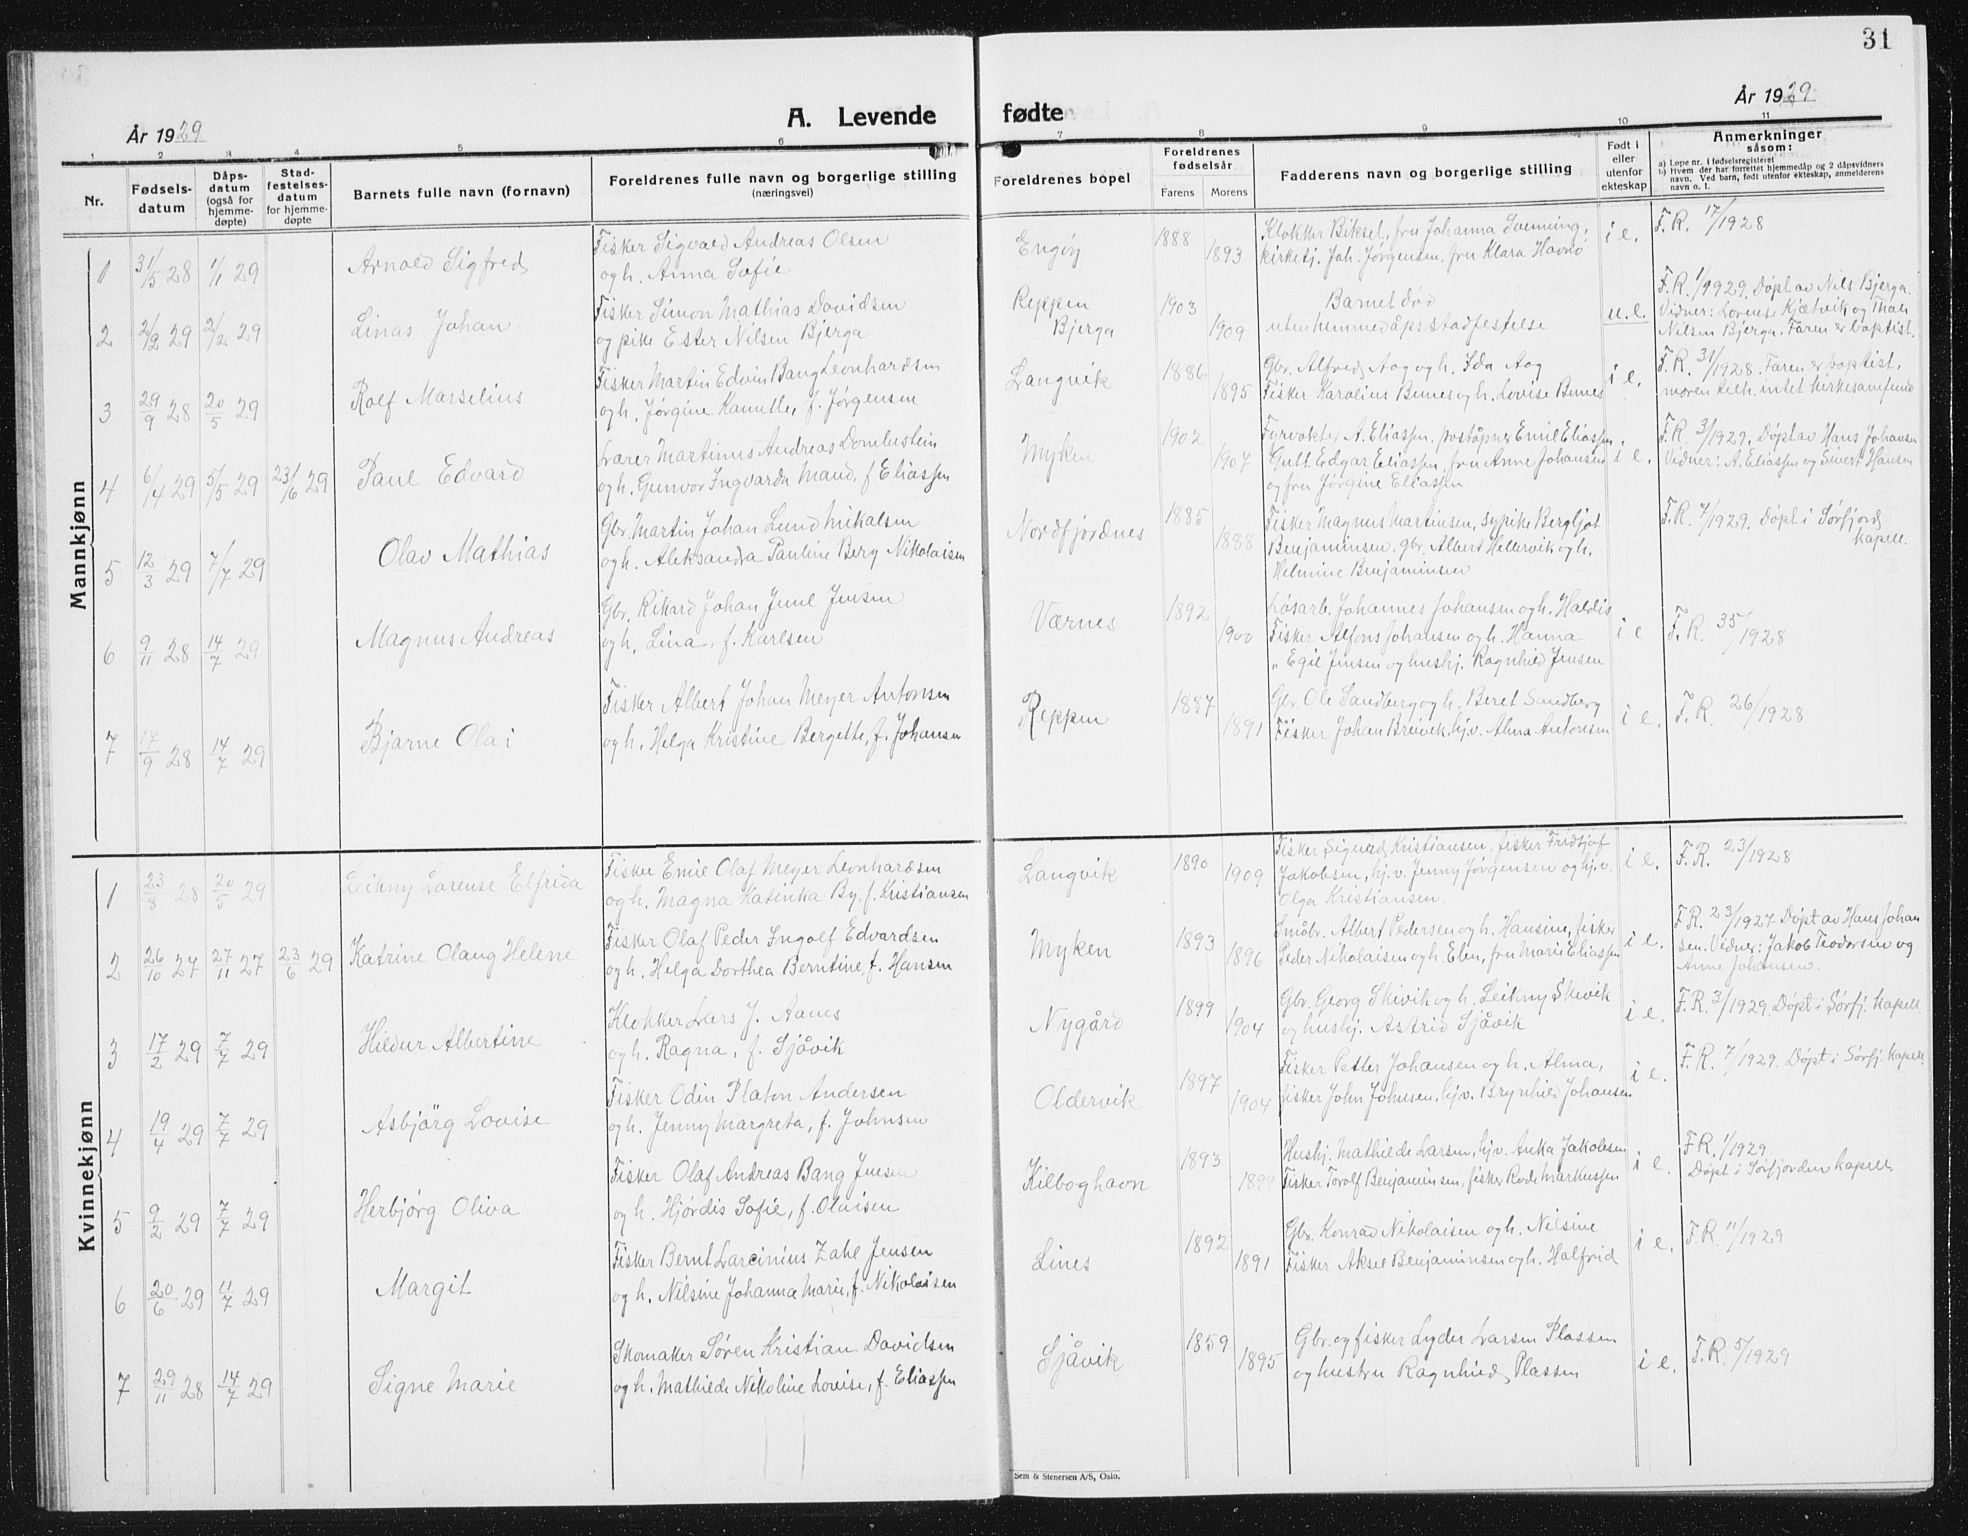 31
År 1929
A. Levende
fødte
År 1929
1 2 3 4 5 6 7 8 9 10 11
Nr.
Fødsels-
datum
Dåps-
datum
(også for
hjemme-
døpte)
Stad-
festelses-
datum
for hjemme-
døpte
Barnets fulle navn (fornavn)
Foreldrenes fulle navn og borgerlige stilling
(næringsvei)
Foreldrenes bopel
Foreldrenes
fødselsår
Farens Morens
Fadderens navn og borgerlige stilling
Født i
eller
utenfor
ekteskap
Anmerkninger
såsom:
a) Løpe nr. i fødselsregisteret
b) Hvem der har forrettet hjemmedåp og 2 dåpsvidners
navn. Ved barn, født utenfor ekteskap, anmelderens
navn o. l.
Mannkjønn
1 31/5 28 1/1 29 Arnold Sigfred
Fisker Sigvald Andreas Olsen
og h. Anna Sofie
Engøy 1888 1893
Klokker Biksel, fru Johanna Svenning,
kirketj. Joh. Jørgensen, fru Klara Havnø
i e. F.R. 17/1928
2 2/2 29 2/2 29 Linas Johan
Fisker Simon Mathias Davidsen
og pike Ester Nilsen Bjerga
Reppen
Bjerga
1903 1909
Barnet død
uten hjemmedåpsstadfestelse
u.e.
F.R. 1/1929. Døpt av Nils Bjerga.
Vidner: Lorents Kjætvik og Thale
Nilsen Bjerga. Faren er baptist.
3 29/9 28 20/5 29 Rolf Marselius
Fisker Martin Edvin Bang Leonhardsen
og h. Jørgine Kamelle, f. Jørgensen
Langvik 1886 1895
Gbr. Alfred Aag og h. Ida Aag
Fisker Karolius Bunes og h. Lovise Bunes
i e.
F.R. 31/1928. Faren er baptist,
moren tilh. intet kirkesamfund
4 6/4 29 5/5 29 23/6 29 Paul Edvard
Lærer Martinus Andreas
og h. Gunvor Ingvarda Maud, f Eliassen
Myken 1902 1907
Fyrvokter A. Eliassen, poståpner Emil Eliassen,
Gutt Edgar Eliassen, fru Anne Johansen
og fru Jørgine Eliassen
i e.
F.R. 3/1929. Døpt av Hans Johansen
Vidner: A. Eliassen og Sivert Hansen
5 12/3 29 7/7 29 Olav Mathias
Gbr. Martin Johan Lund Mikalsen
og h. Aleksandra Pauline Berg Nikolaisen
Nordfjordnes 1885 1888
Fisker Magnus Martinsen, sypike Bergljot
Benjaminsen, gbr. Albert Hellervik og h.
Helmine Benjaminsen
F.R. 7/1929. Døpt i Sørfjord
kapell.
6 9/11 28 14/7 29 Magnus Andreas
Gbr. Rikard Johan Juul Jensen
og h. Lina, f. Karlsen
Værnes 1892 1900
Løsarb. Johannes Johansen og h. Haldis
Fisker Alfons Johansen og h. Hanna
" Egil Jensen og hushj. Ragnhild Jensen
i e F.R. 35/1928
7 17/9 28 14/7 29 Bjarne Olai
Fisker Albert Johan Meyer Antonsen
og h. Helga Kristine Bergette, f. Johansen
Reppen 1887 1891
Gbr. Ole Sandberg og h. Beret Sandberg
Fisker Johan Breivik, hj.v. Alma Antonsen
i e. F.R. 26/1928
Kvinnekjønn
1 23/8 28 20/5 29 Leikny Lorense Elfrida
Fisker Emil Olaf Meyer Leonhardsen
og h. Magna Katinka By, f. Kristiansen
Langvik 1890 1909
Fisker Sigurd Kristiansen, fisker Fridtjof
Jakobsen, hj.v. Jenny Jørgensen og hj.v.
Olga Kristiansen.
i e. F.R. 23/1928
2 26/10 27 27/11 27 23/6 29 Katrine Olaug Helene
Fisker Olaf Peder Ingolf Edvardsen
og h. Helga Dorthea Berntine, f. Hansen
Myken 1893 1896
Småbr. Albert Pedersen og h. Hansine, fisker
Peder Nikolaisen og h. Elen, fru Marie Eliassen
i e.
F.R. 23/1927 Døpt av Hans Johan
sen. Vidner: Jakob Teodorsen og
Anne Johansen.
3 17/2 29 7/7 29 Hildur Albertine
Klokker Lars J. Aanes
og h. Ragna, f. Sjåvik
Nygård 1899 1904
Gbr. Georg Skivik og h. Leikny Skivik
og hushj. Astrid Sjåvik
i e. F.R. 3/1929 Døpt i Sørfj. kapell
4 19/4 29 7/7 29 Asbjörg Lovise
Fisker Odin Platon Andersen
og h. Jenny Margreta, f. Johnsen
Oldervik 1897 1904
Fisker Petter Johansen og h. Alma,
fisker John Johnsen, hj.v. Brynhild Johansen
i e. F.R. 7/1929. Døpt i Sørfj. kapell
5 9/2 29 7/7 29 Herbjørg Oliva
Fisker Olaf Andreas Bang Jensen
og h. Hjørdis Sofie, f. Olaisen
Kilboghavn 1893 1899
Hushj. Mathilde Larsen, hj.v. Anka Jakobsen
Fisker Torolf Benjaminsen, fisker Rode Markussen
i e. F.R. 1/1929
Døpt i Sørfjorden kapell
6 20/6 29 11/7 29 Margit
Fisker Bernt Larcinius Zahl Jensen
og h. Nilsine Johanna Marie, f. Nikolaisen
Lines 1892 1891
Gbr. Konrad Nikolaisen og h. Nilsine
Fisker Aksel Benjaminsen og h. Halfrid
i e. F.R. 11/1929
7 29/11 28 14/7 29 Signe Marie
Skomaker Søren Kristian Davidsen
og h. Mathilde Nikoline Lovise, f. Eliassen
Sjåvik 1859 1895
Gbr. og fisker Lyder Larsen Plassen
og hustru Ragnhild Plassen
i e. F.R. 5/1929
Sem & Stenersen A/S, Oslo.